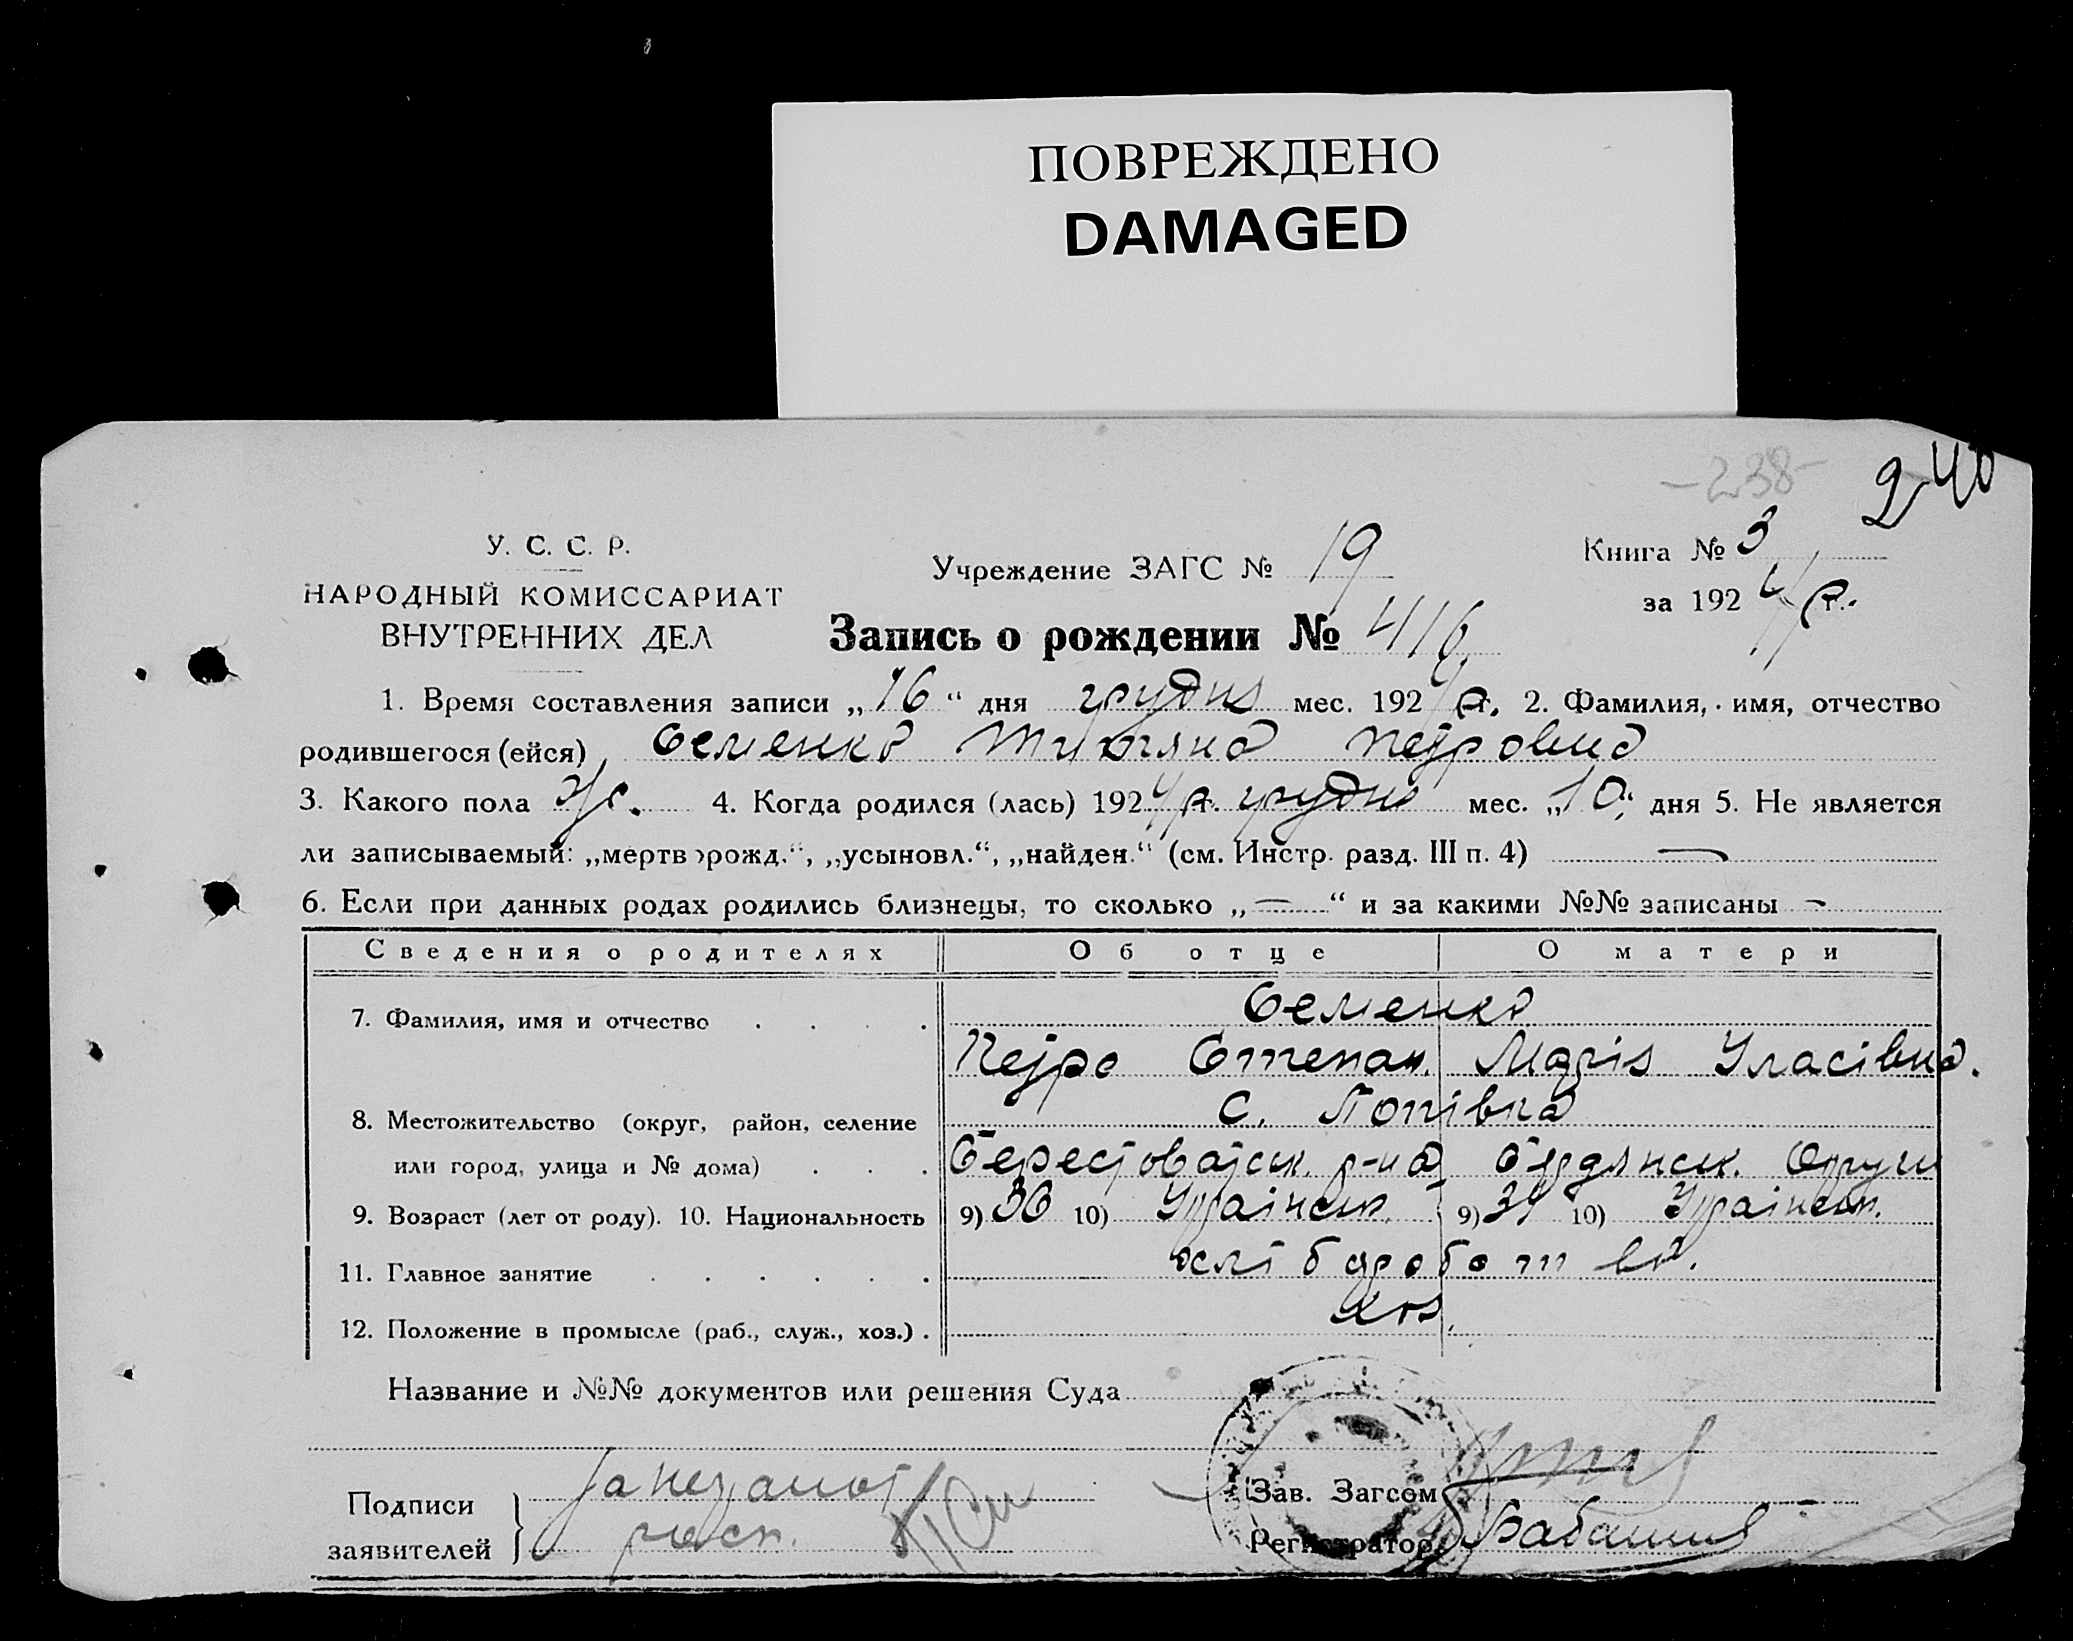 ПОВРЕЖДЕНО
DAMAGED
-238-
240
У. С. С. Р.
НАРОДНЫЙ КОМИССАРИАТ
ВНУТРЕННИХ ДЕЛ
Учреждение ЗАГС № 19
Книга № 3
за 1924 р.
Запись о рождении № 416
1. Время составления записи „16“ дня грудня мес. 1924 р. 2. Фамилия, имя, отчество
родившегося (ейся) Семенко Титяна Петровна
3. Какого пола ж. 4. Когда родился (лась) 1924 р. грудня мес. „10“ дня 5. Не является
ли записываемый: „мертворожд.“, „усыновл.“, „найден.“ (см. Инстр. разд. III п. 4) —
6. Если при данных родах родились близнецы, то сколько „—“ и за какими №№ записаны -
Сведения о родителях Об отце О матери
7. Фамилия, имя и отчество Семенко
Петро Степан. Марія Уласівна.
8. Местожительство (округ, район, селение С. Попівка
или город, улица и № дома) Берестоватск. р-на Бердянск. Округи
9. Возраст (лет от роду). 10. Национальность 9) 36 10) Українск. 9) 34 10) Українск.
11. Главное занятие хліборобств.
12. Положение в промысле (раб., служ., хоз.) хоз.
Название и №№ документов или решения Суда
Подписи
заявителей
За
расп.
Зав. Загсом
Регистратор